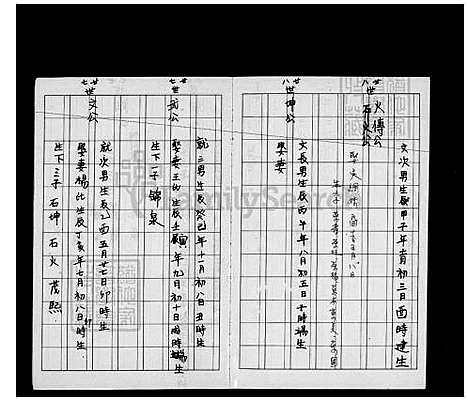 火傳公
石火公
文次男生辰甲子年七月初三日酉時建生
廿八世坤公
文長男生辰丙午年八月初五日子時瑞生
娶妻
廿七世武公
就三男生辰癸巳年十一月初八日丑時生
娶妻王氏生辰壬寅年九月初十日酉時瑞生
生下一子錦泉
廿七世文公
就次男生辰乙酉五月廿七日卯時生
娶妻楊氏生辰丁亥年七月初八日卯時生
生下三子石坤石火茂熙
FamilySearch